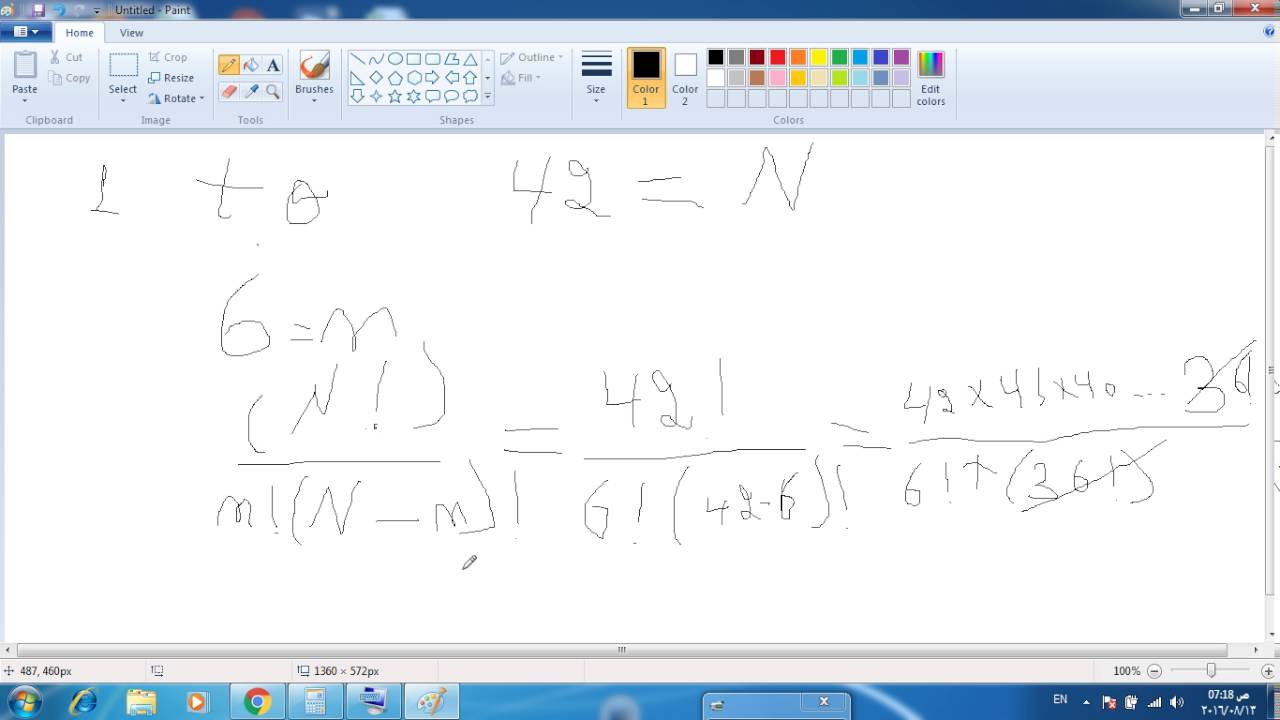 Untitled - Paint
Home View
Paste Cut Copy
Clipboard
Select Crop Resize Rotate
Image
Tools
Brushes
Shapes
Outline Fill
Size
Color 1 Color 2
Edit colors
Colors
1 to 42 = N
6 = m
(N!) = 42! = 42 × 41 × 40 ...
m!(N - m)! 6!(42-6)! 6! + (36!)
487, 460px
1360 × 572px
100%
EN
07:18 ص
٢٠١٦/٠٨/١٣